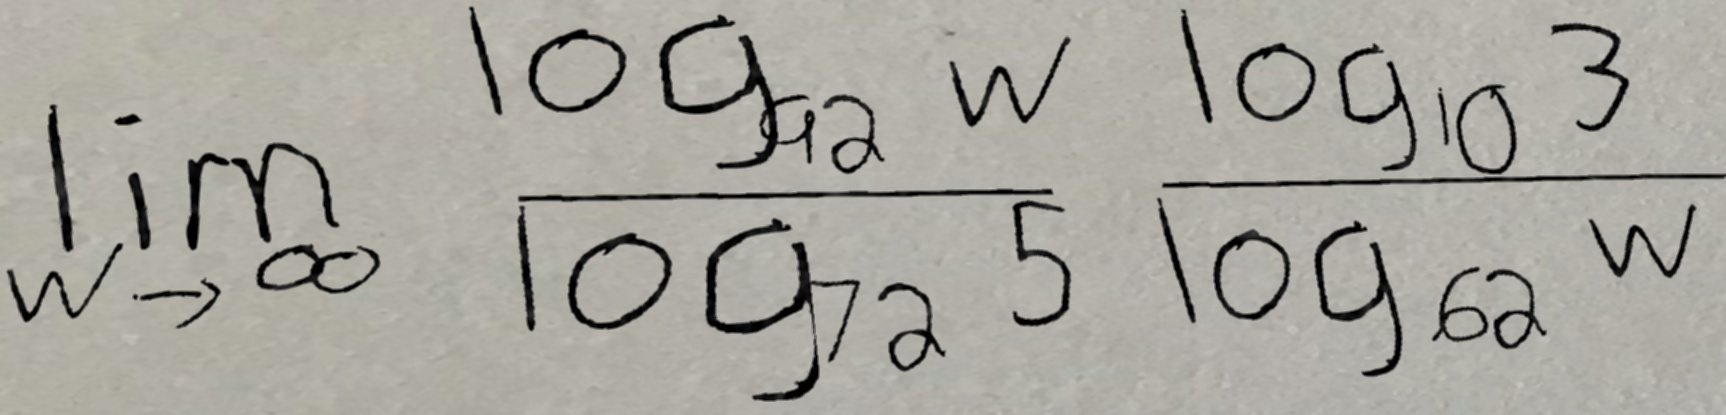 lim w→∞ log₉₂ w / log₇₂ 5 log₁₀ 3 / log₆₂ w